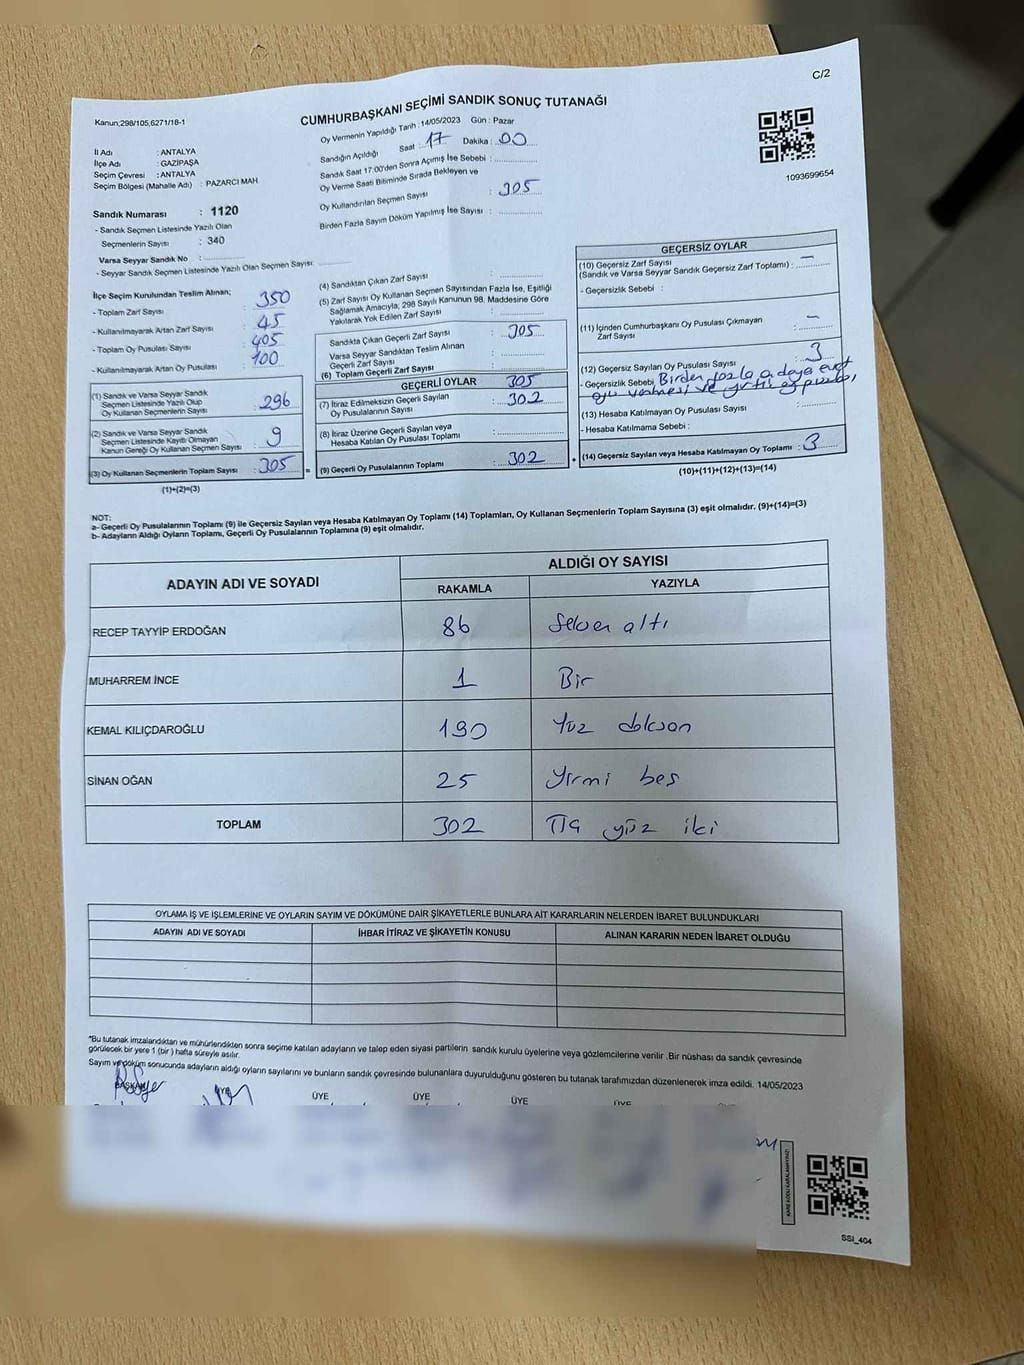 C/2
Kanun;298/105,6271/18-1
CUMHURBAŞKANI SEÇİMİ SANDIK SONUÇ TUTANAĞI
1093699654
İl Adı : ANTALYA
İlçe Adı : GAZİPAŞA
Seçim Çevresi : ANTALYA
Seçim Bölgesi (Mahalle Adı) : PAZARCI MAH
Sandık Numarası : 1120
- Sandık Seçmen Listesinde Yazılı Olan
Seçmenlerin Sayısı : 340
Varsa Seyyar Sandık No :
- Seyyar Sandık Seçmen Listesinde Yazılı Olan Seçmen Sayısı
Oy Vermenin Yapıldığı Tarih : 14/05/2023 Gün : Pazar
Sandığın Açıldığı Saat : 17 Dakika : 00
Sandık Saat 17:00'den Sonra Açımış İse Sebebi :
Oy Verme Saati Bitiminde Sırada Bekleyen ve
Oy Kullandırılan Seçmen Sayısı : 305
Birden Fazla Sayım Döküm Yapılmış İse Sayısı :
İlçe Seçim Kurulundan Teslim Alınan;
- Toplam Zarf Sayısı : 350
- Kullanılmayarak Artan Zarf Sayısı : 45
- Toplam Oy Pusulası Sayısı : 405
- Kullanılmayarak Artan Oy Pusulası : 100
(1) Sandık ve Varsa Seyyar Sandık
Seçmen Listesinde Yazılı Olup
Oy Kullanan Seçmenlerin Sayısı : 296
(2) Sandık ve Varsa Seyyar Sandık
Seçmen Listesinde Kayıtlı Olmayan
Kanun Gereği Oy Kullanan Seçmen Sayısı : 9
(3) Oy Kullanan Seçmenlerin Toplam Sayısı : 305 =
(1)+(2)=(3)
(4) Sandıktan Çıkan Zarf Sayısı :
(5) Zarf Sayısı Oy Kullanan Seçmen Sayısından Fazla İse, Eşitliği
Sağlamak Amacıyla, 298 Sayılı Kanunun 98. Maddesine Göre
Yakılarak Yok Edilen Zarf Sayısı :
Sandıkta Çıkan Geçerli Zarf Sayısı : 305
Varsa Seyyar Sandıktan Teslim Alınan
Geçerli Zarf Sayısı :
(6) Toplam Geçerli Zarf Sayısı : 305
GEÇERLİ OYLAR
(7) İtiraz Edilmeksizin Geçerli Sayılan
Oy Pusulalarının Sayısı : 302
(8) İtiraz Üzerine Geçerli Sayılan veya
Hesaba Katılan Oy Pusulası Toplamı :
(9) Geçerli Oy Pusulalarının Toplamı : 302 +
GEÇERSİZ OYLAR
(10) Geçersiz Zarf Sayısı
(Sandık ve Varsa Seyyar Sandık Geçersiz Zarf Toplamı) : —
- Geçersizlik Sebebi :
(11) İçinden Cumhurbaşkanı Oy Pusulası Çıkmayan
Zarf Sayısı : —
(12) Geçersiz Sayılan Oy Pusulası Sayısı : 3
- Geçersizlik Sebebi Birden fazla adaya evet
oyu verilmesi ve yırtık oy pusulası,
(13) Hesaba Katılmayan Oy Pusulası Sayısı :
- Hesaba Katılmama Sebebi :
(14) Geçersiz Sayılan veya Hesaba Katılmayan Oy Toplamı : 3
(10)+(11)+(12)+(13)=(14)
NOT:
a- Geçerli Oy Pusulalarının Toplamı (9) ile Geçersiz Sayılan veya Hesaba Katılmayan Oy Toplamı (14) Toplamları, Oy Kullanan Seçmenlerin Toplam Sayısına (3) eşit olmalıdır. (9)+(14)=(3)
b- Adayların Aldığı Oyların Toplamı, Geçerli Oy Pusulalarının Toplamına (9) eşit olmalıdır.
ADAYIN ADI VE SOYADI ALDIĞI OY SAYISI
RAKAMLA YAZIYLA
RECEP TAYYİP ERDOĞAN 86 Seksen altı
MUHARREM İNCE 1 Bir
KEMAL KILIÇDAROĞLU 190 Yüz doksan
SİNAN OĞAN 25 Yirmi beş
TOPLAM 302 Üç yüz iki
OYLAMA İŞ VE İŞLEMLERİNE VE OYLARIN SAYIM VE DÖKÜMÜNE DAİR ŞİKAYETLERLE BUNLARA AİT KARARLARIN NELERDEN İBARET BULUNDUKLARI
ADAYIN ADI VE SOYADI İHBAR İTİRAZ VE ŞİKAYETİN KONUSU ALINAN KARARIN NEDEN İBARET OLDUĞU
*Bu tutanak imzalandıktan ve mühürlendikten sonra seçime katılan adayların ve talep eden siyasi partilerin sandık kurulu üyelerine veya gözlemcilerine verilir .Bir nüshası da sandık çevresinde
görülecek bir yere 1 (bir ) hafta süreyle asılır.
Sayım ve döküm sonucunda adayların aldığı oyların sayılarını ve bunların sandık çevresinde bulunanlara duyurulduğunu gösteren bu tutanak tarafımızdan düzenlenerek imza edildi. 14/05/2023
BAŞKAN ÜYE ÜYE ÜYE ÜYE ÜYE
KARE KODU KARALAMAYINIZ!
SSI_404